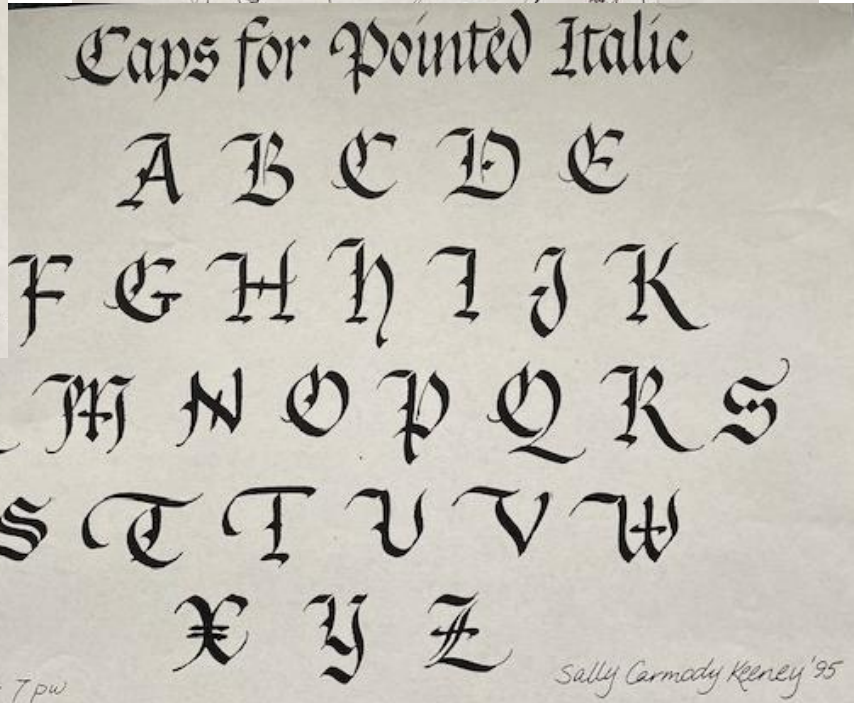 Caps for Pointed Italic
A B C D E
F G H H I J K
M N O P Q R S
S T T U V W
X Y Z
7 pw
Sally Carmody Keeney '95